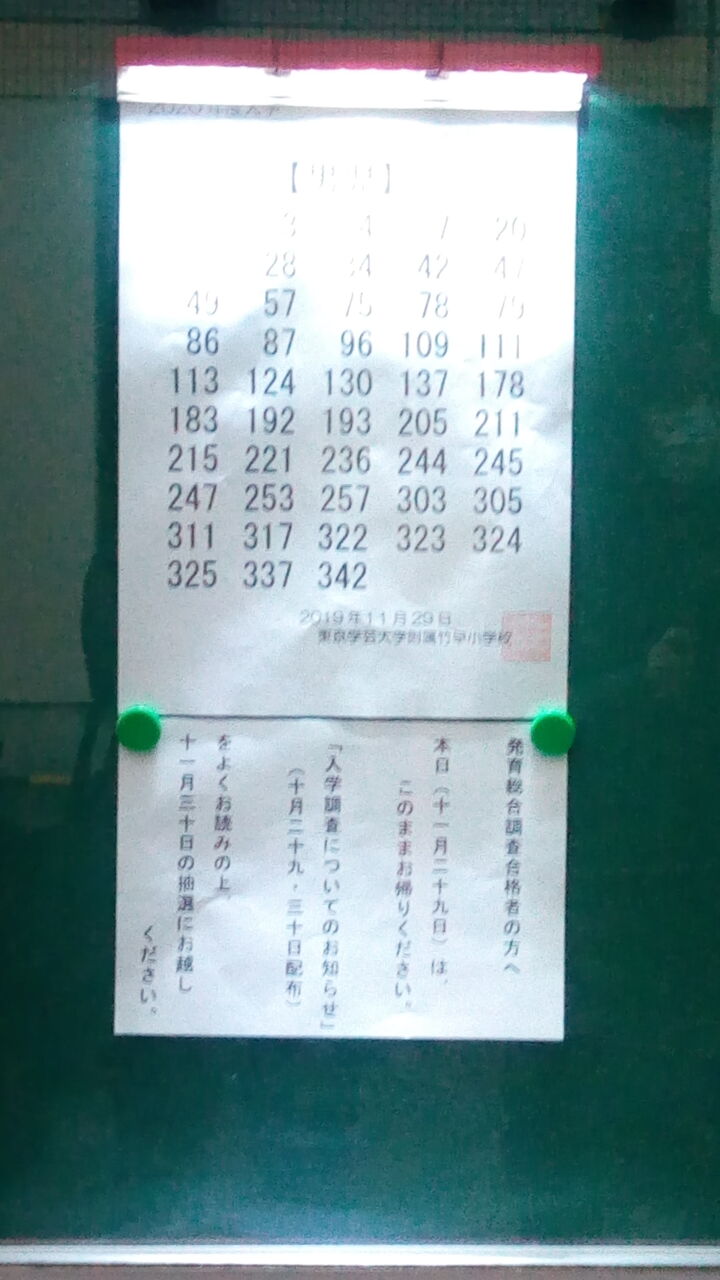 28 42
57 78
86 87 96 109 111
113 124 130 137 178
183 192 193 205 211
215 221 236 244 245
247 253 257 303 305
311 317 322 323 324
325 337 342
2019年11月29日
東京学芸大学附属竹早小学校
発育総合調査合格者の方へ
本日(十一月二十九日)は、
このままお帰りください。
「入学調査についてのお知らせ」
(十月二十九・三十日配布)
をよくお読みの上、
十一月三十日の抽選にお越し
ください。